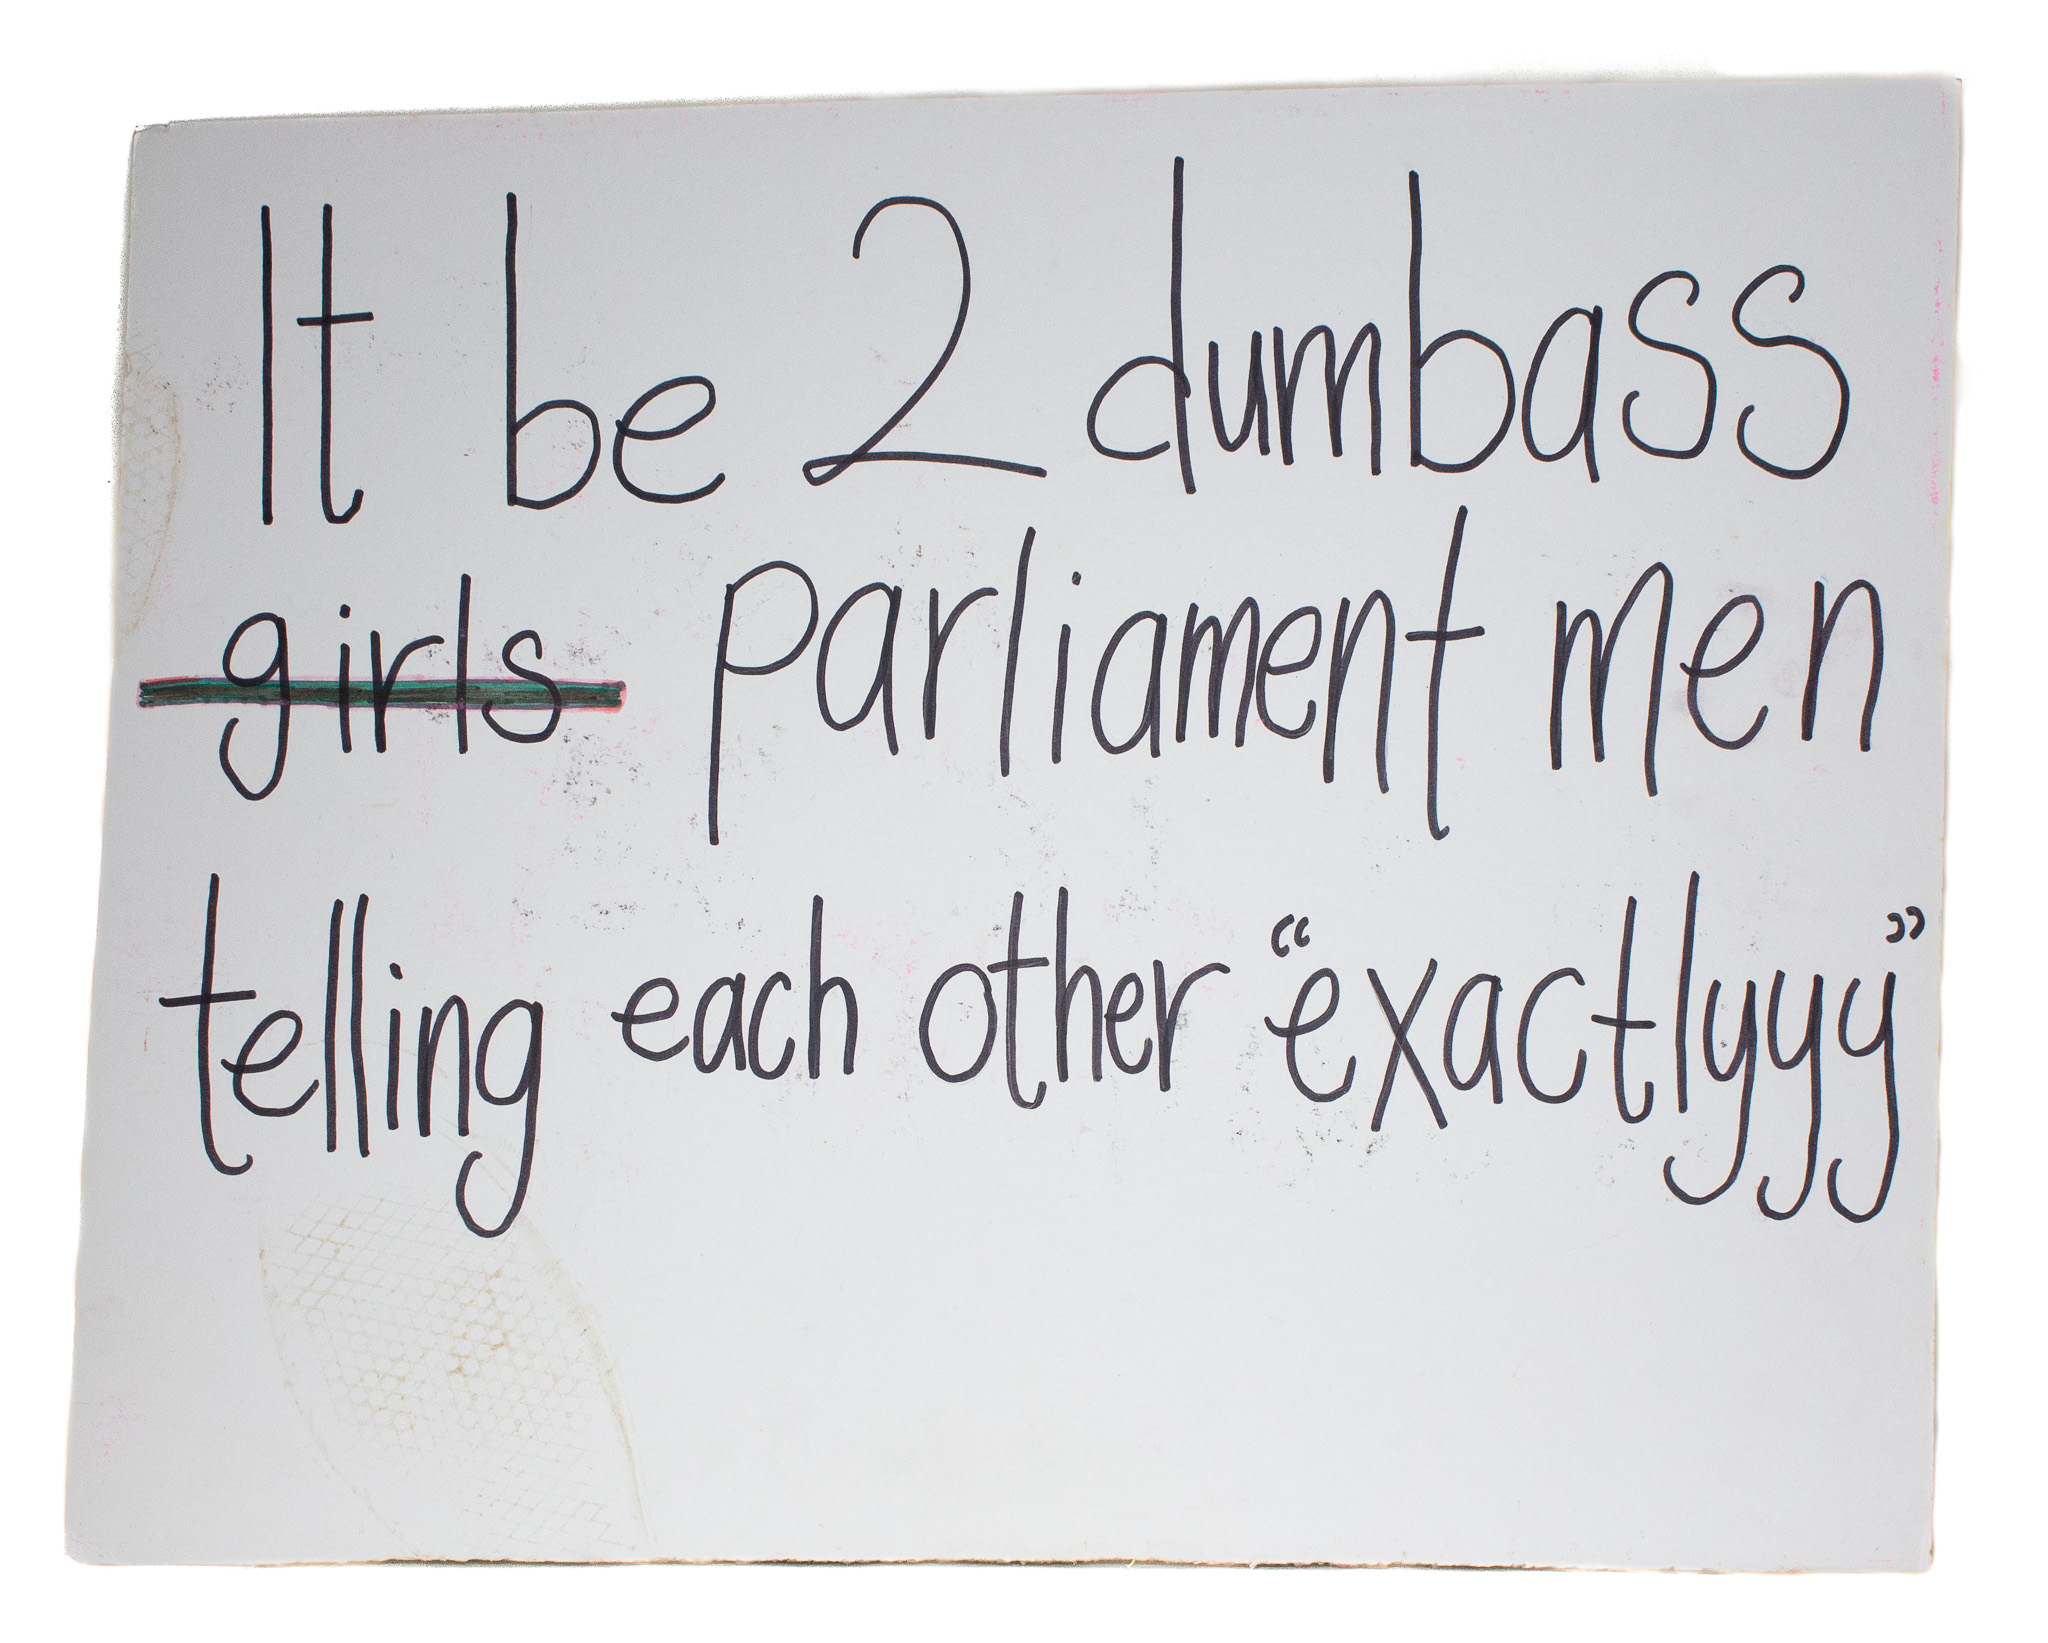 It be 2 dumbass
girls parliament men
telling each other “exactlyyy”